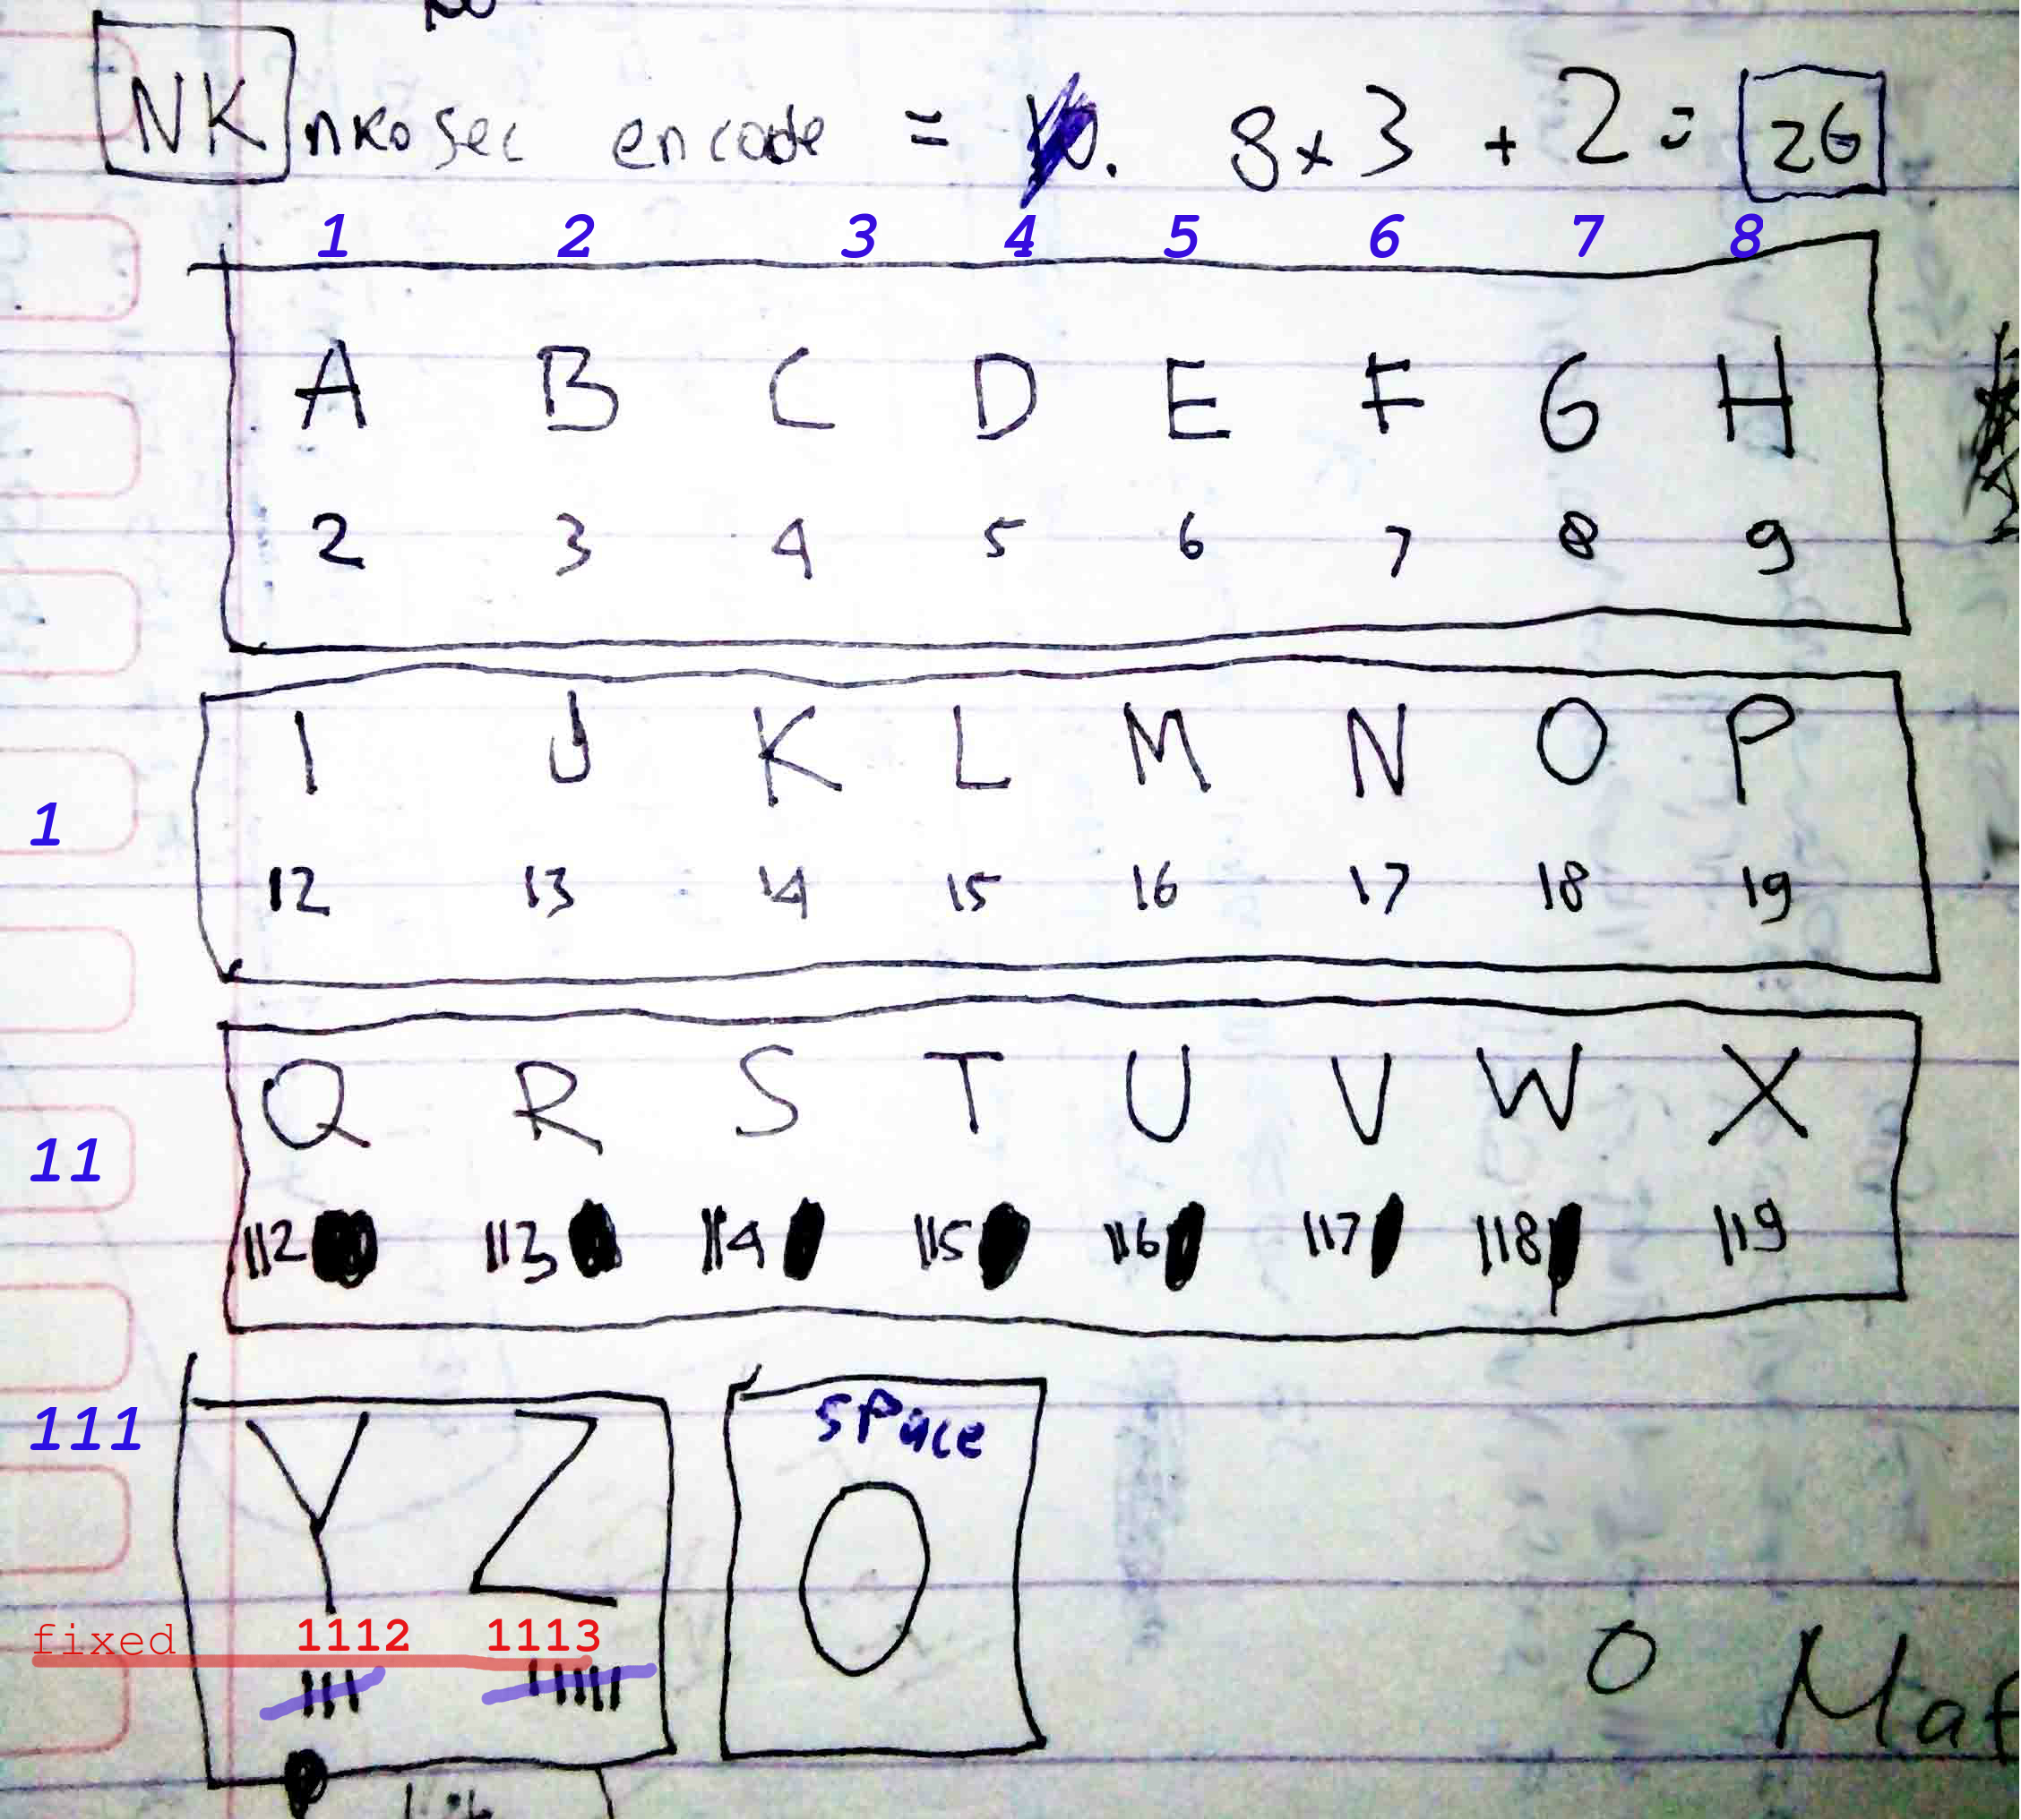 NK nkosec encode = 8x3 + 2 = 26
1 2 3 4 5 6 7 8
A B C D E F G H
2 3 4 5 6 7 8 9
I J K L M N O P
1
12 13 14 15 16 17 18 19
Q R S T U V W X
11
112 113 114 115 116 117 118 119
space
111
Y Z O
fixed 1112 1113
O Mat